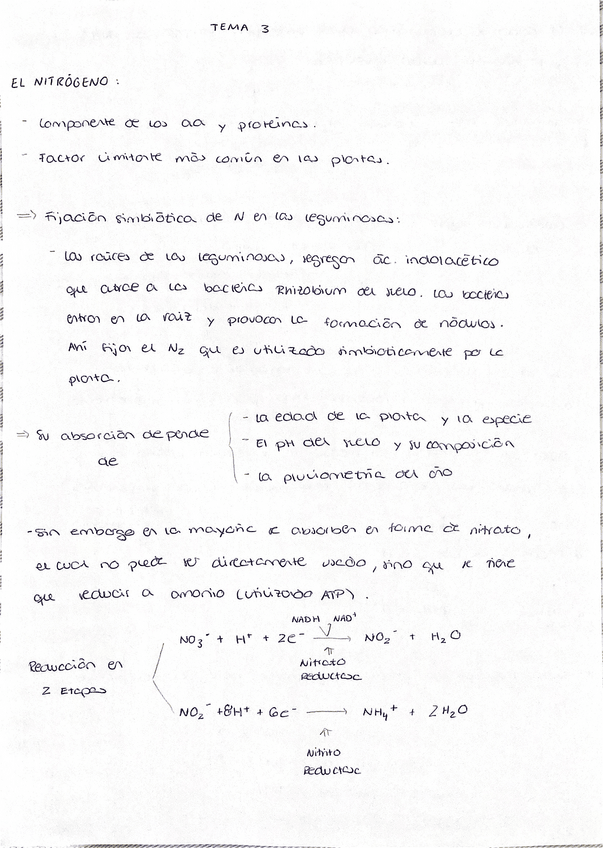 TEMA 3
EL NITRÓGENO :
- Componente de los aa y proteínas.
- Factor limitante más común en las plantas.
=> Fijación simbiótica de N en las leguminosas:
- Las raíces de las leguminosas, segregan ác. indolacético
que atrae a las bacterias Rhizobium del suelo. Las bacterias
entran en la raíz y provocan la formación de nódulos.
Ahí fijan el N2 que es utilizado simbioticamente por la
planta.
=> Su absorción depende
de
- La edad de la planta y la especie
- El pH del suelo y su composición
- La pluviometría del año
- Sin embargo en la mayoría se absorben en forma de nitrato,
el cual no puede ser directamente usado, sino que se tiene
que reducir a amonio (utilizando ATP).
Reducción en
2 Etapas
NADH NAD+
NO3- + H+ + 2e- → NO2- + H2O
Nitrato
Reductasa
NO2- + 8H+ + 6e- → NH4+ + 2H2O
Nitrito
Reductasa